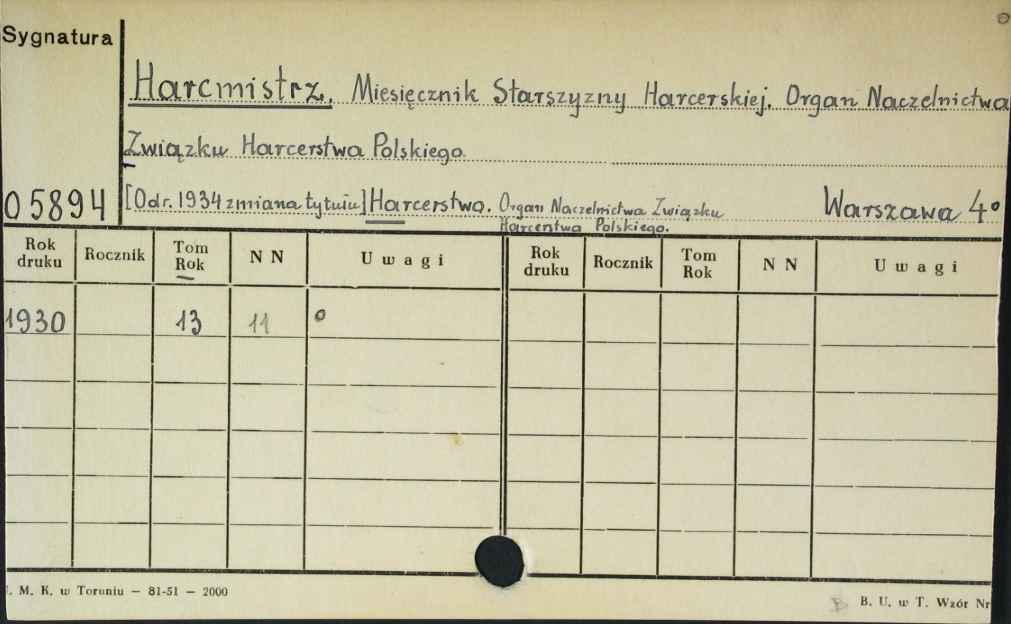 Sygnatura
Harcmistrz. Miesięcznik Starszyzny Harcerskiej. Organ Naczelnictwa
Związku Harcerstwa Polskiego.
05894 [Od r. 1934 zmiana tytułu] Harcerstwo. Organ Naczelnictwa Związku Warszawa 4°
Harcerstwa Polskiego.
Rok druku Rocznik Tom Rok N N Uwagi Rok druku Rocznik Tom Rok N N Uwagi
1930 13 11 o
M. K. w Toruniu — 81-51 — 2000
B. U. w T. Wzór Nr